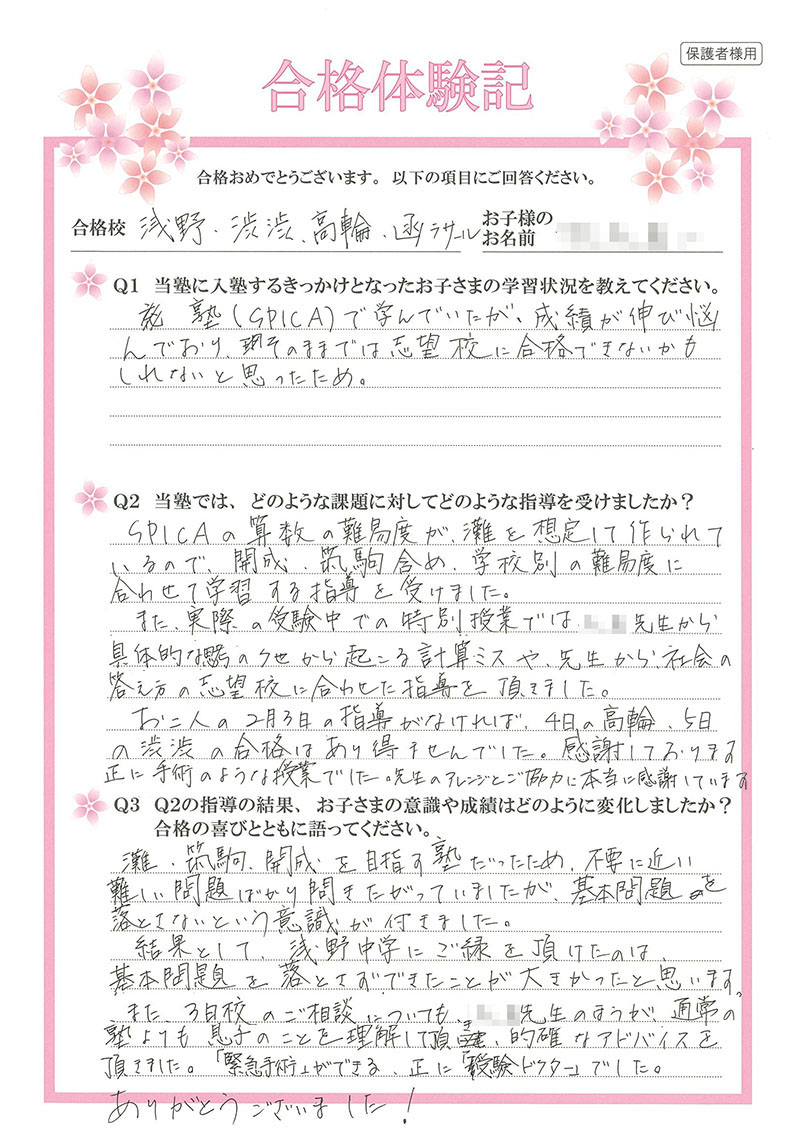 保護者様用
合格体験記
合格おめでとうございます。以下の項目にご回答ください。
合格校 浅野・渋渋、高輪・函ラサール お子様の
お名前
Q1 当塾に入塾するきっかけとなったお子さまの学習状況を教えてください。
塾(SPICA)で学んでいたが、成績が伸び悩
んでおり、そのままでは志望校に合格できないかも
しれないと思ったため。
Q2 当塾では、どのような課題に対してどのような指導を受けましたか？
SPICAの算数の難易度が、灘を想定して作られて
いるので、開成、筑駒含め、学校別の難易度に
合わせて学習する指導を受けました。
また、実際の受験中での特別授業では 先生から
具体的な思考のクセから起こる計算ミスや、先生から社会の
答え方の志望校に合わせた指導を頂きました。
お二人の2月3日の指導がなければ、4日の高輪、5日
の渋渋の合格はあり得ませんでした。感謝しております
正に手術のような授業でした。先生のアレンジとご協力に本当に感謝しています
Q3 Q2の指導の結果、お子さまの意識や成績はどのように変化しましたか？
合格の喜びとともに語ってください。
灘・筑駒、開成を目指す塾だったため、不要に近い
難しい問題ばかり問きたがっていましたが、基本問題を
落とさないという意識が付きました。
結果として、浅野中学にご縁を頂けたのは、
基本問題を落とさずできたことが大きかったと思います。
また、3日校のご相談についても、 先生のほうが、通常の
塾よりも息子のことを理解して頂き、的確なアドバイスを
頂きました。「緊急手術」ができる、正に「受験ドクター」でした。
ありがとうございました！